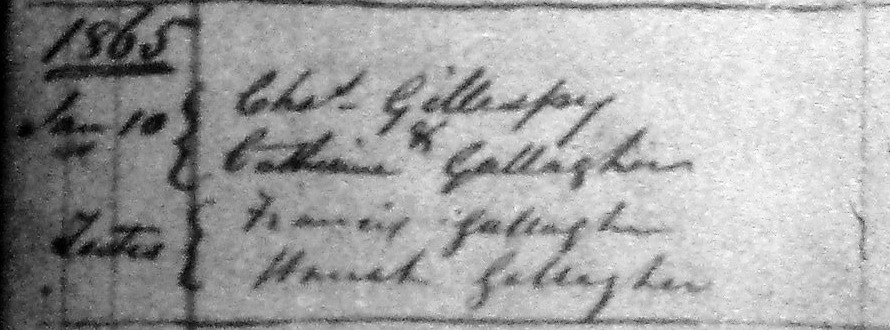 1865
Jan 10 { Chas. Gillespy
&
Catherine Gallagher
Testes { Francis Gallagher
Hannah Gallagher